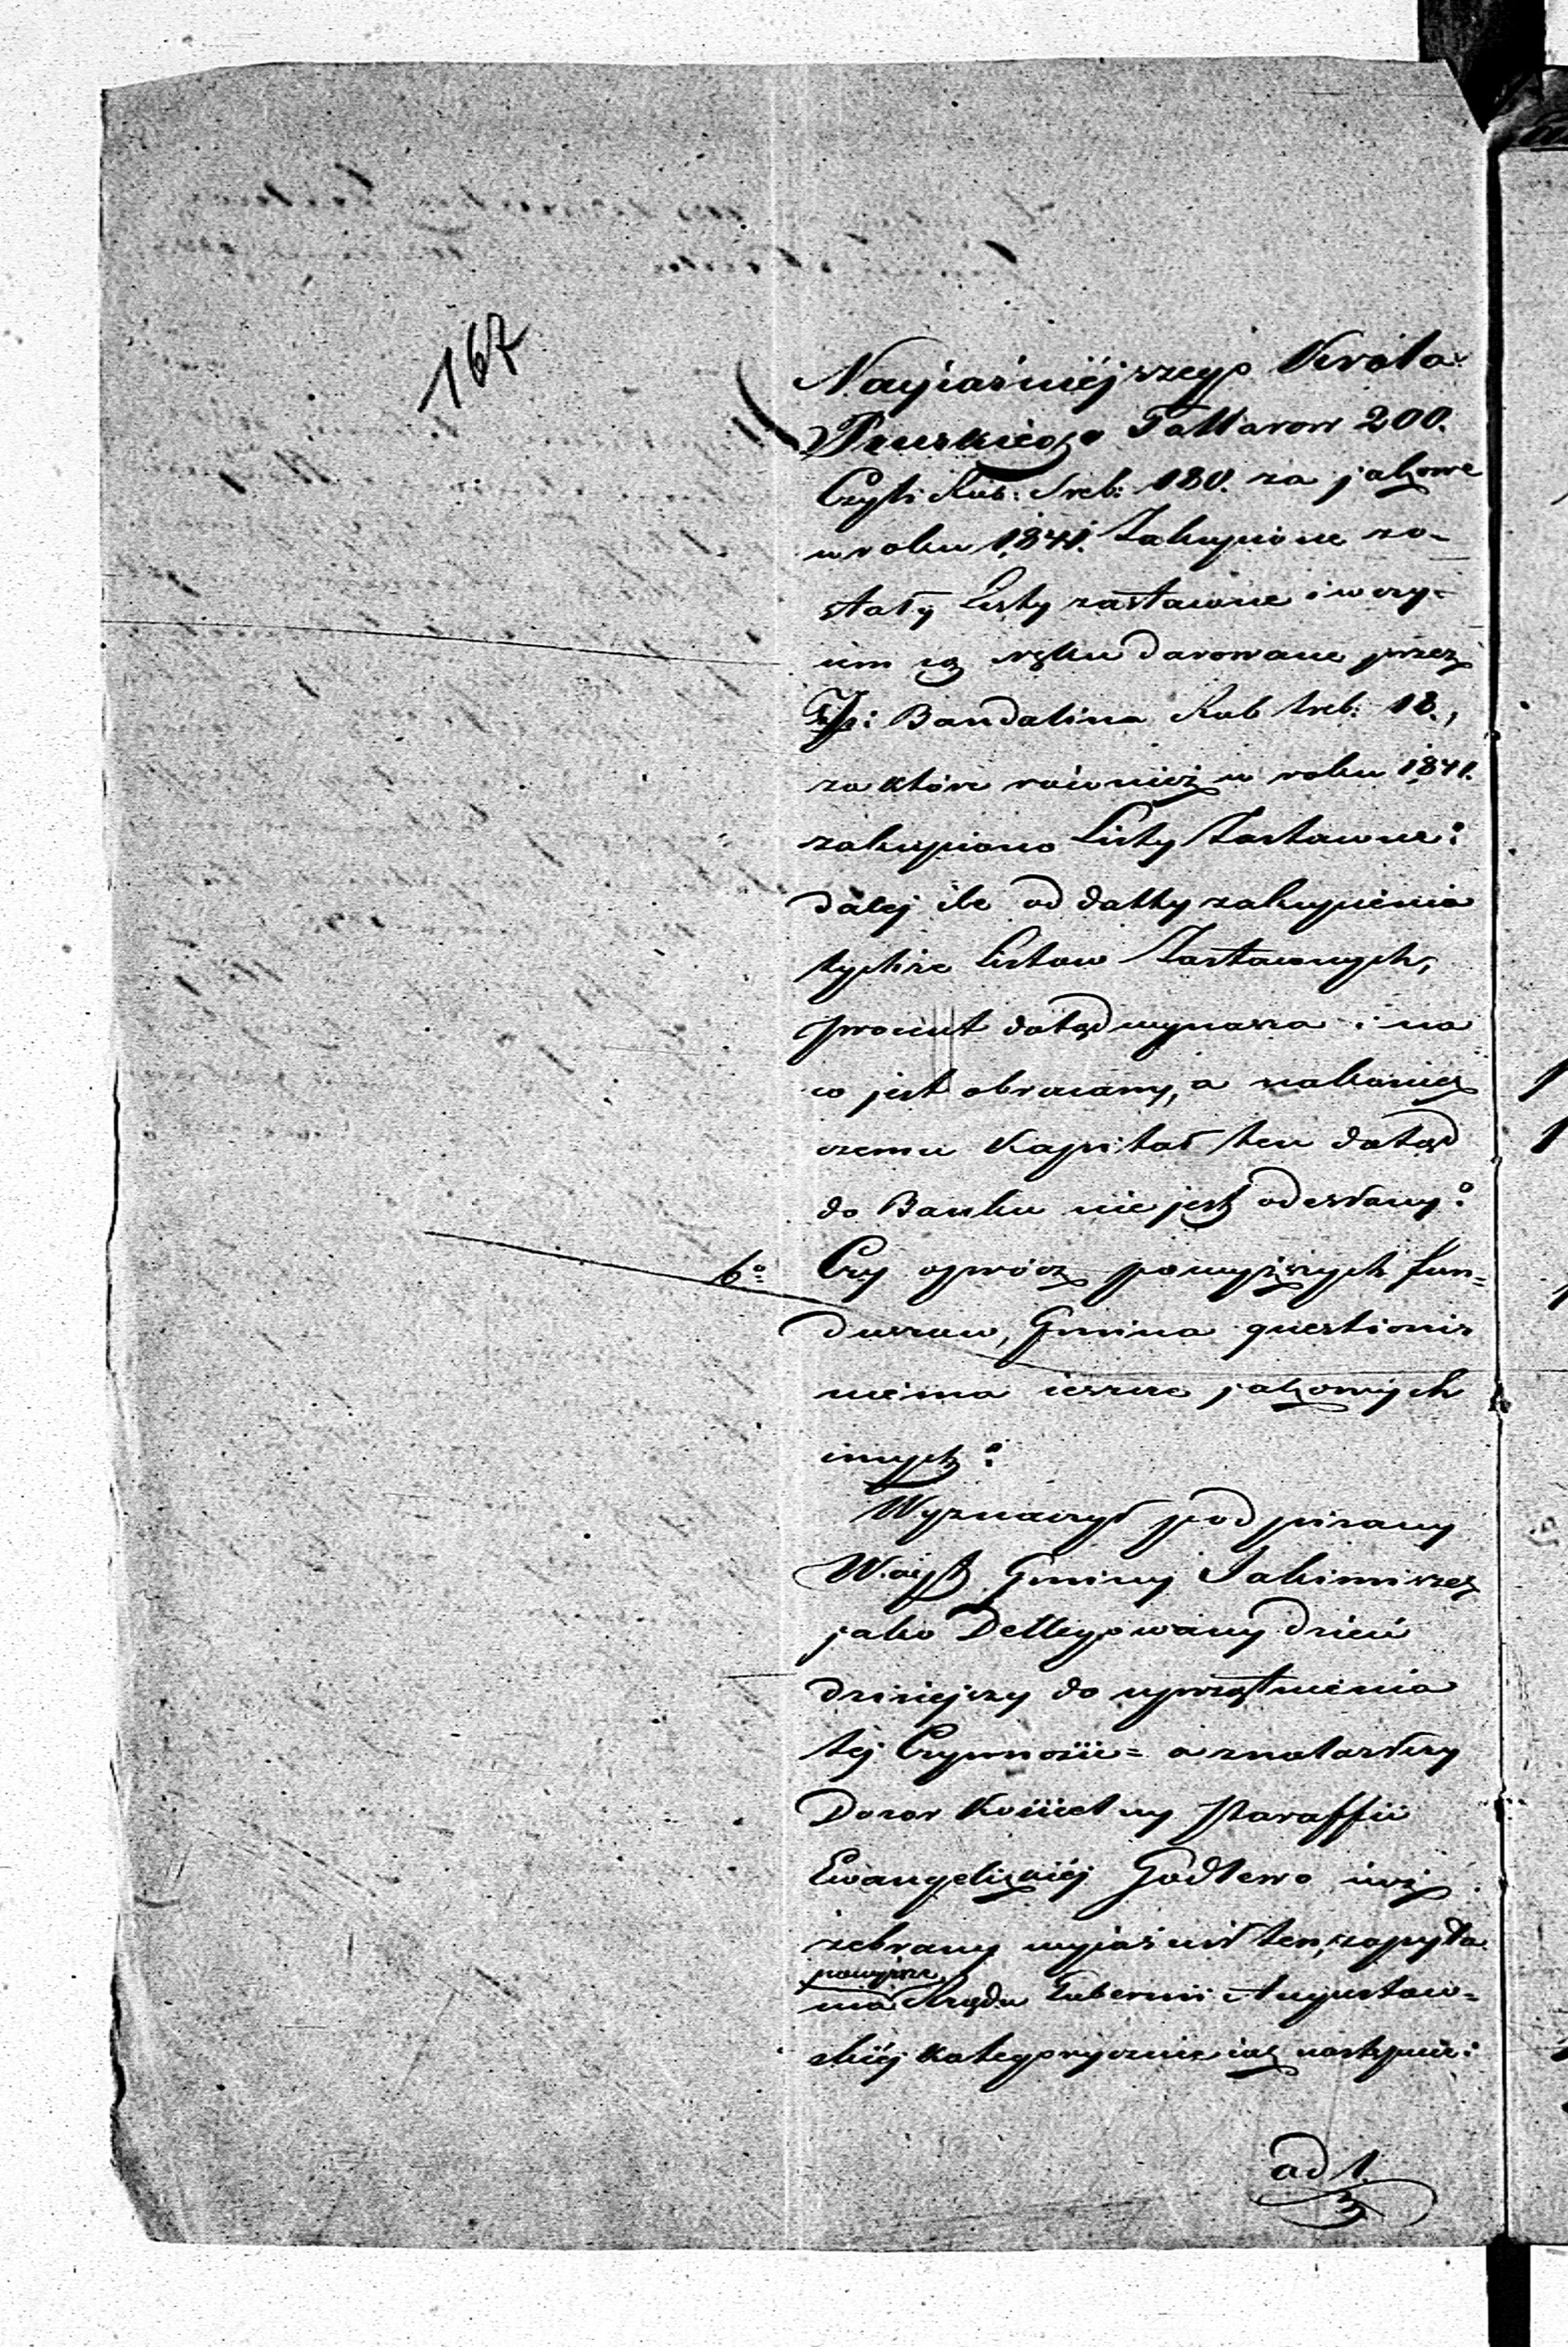 167
Nayiaśnieyszego Króla
Pruskiego Tallarow 200.
Czyli Rub: Sreb: 180. za jakowe
w roku 1841. Zakupione zo-
stały Listy zastawne i w czy-
im są ręku darowane przez
JP: Bandalina Rub Sreb: 18.,
za które również w roku 1841.
zakupiono Listy Zastawne:
dalej ile od datty zakupienia
tychże Listow Zastawnych,
procent dotąd wynosza i na
co jest obracany, a nakoniec
czemu Kapitał ten dotąd
do Banku nie jest odesłany:
6o Czy oprócz powyższych fun=
duszow, Gmina questionis
niema ieszcze jakowych
innych:
Wyznaczył podpisany
Wójt Gminy
jako Dellegowany dzień
dzisiejszy do uprzątnienia
tej Czynności = a znalazłszy
Dozor Kościelny Paraffii
Ewangelickiéj Godlewo iuż
zebrany wyiaśnił ten, zapyta
powyższe
nia Rządu Gubernii Augustow=
skiéj kategorycznie iak następuie:
ad 1.